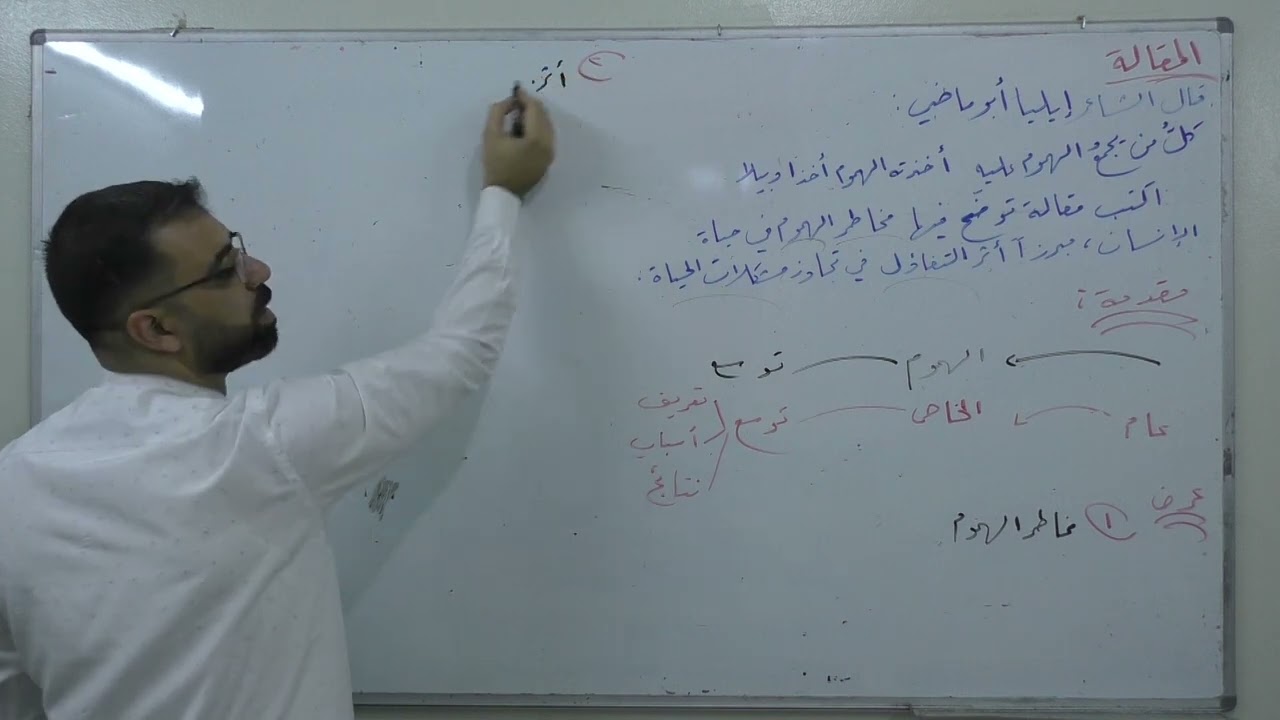 المقالة
قال الشاعر إيليا أبو ماضي :
كلُّ من يجمعُ الهموم عليه أخذته الهموم أخذا وبيلا
اكتب مقالة توضّح فيها مخاطر الهموم في حياة
الإنسان ، مبرزاً أثر التفاؤل في تجاوز مشكلات الحياة .
مقدمة :
الهموم توسع
عام الخاص توسع
تعريف
أسباب
نتائج
عرض
١ مخاطر الهموم
٢ أثر